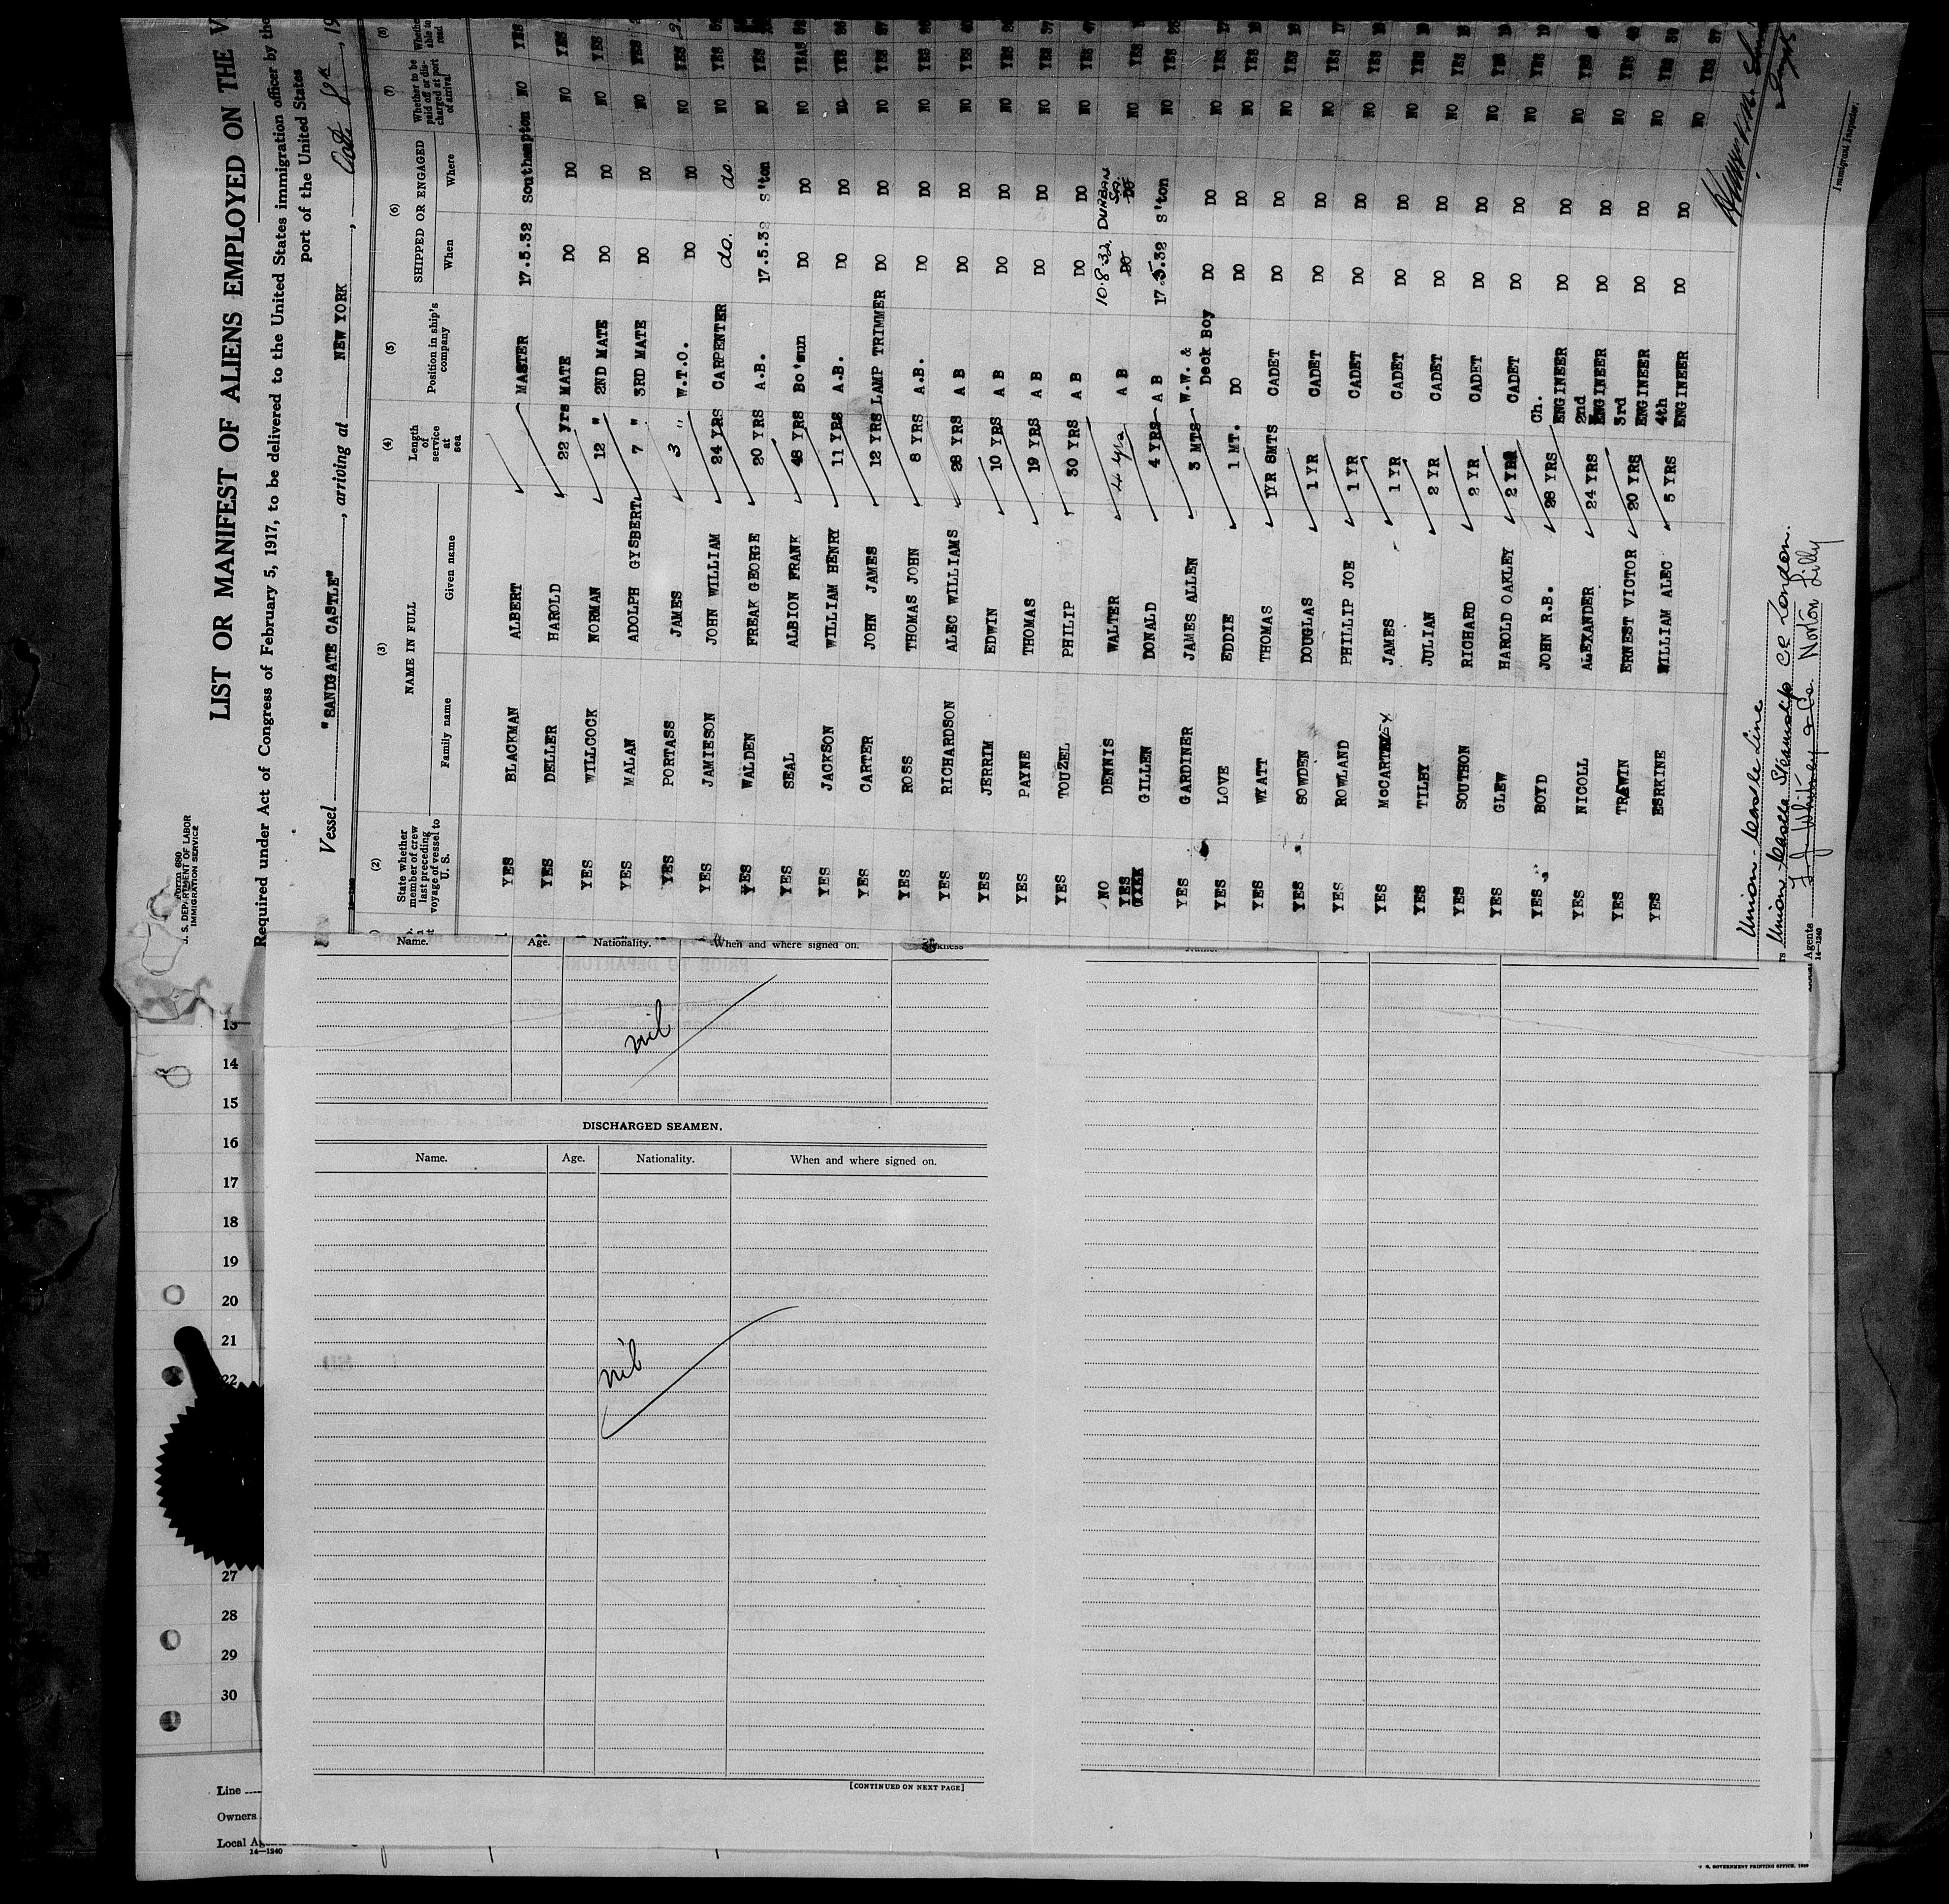 Form 680
U. S. DEPARTMENT OF LABOR
IMMIGRATION SERVICE
LIST OR MANIFEST OF ALIENS EMPLOYED ON THE V
Required under Act of Congress of February 5, 1917, to be delivered to the United States immigration officer by the
port of the United States
Vessel "SANDGATE CASTLE", arriving at NEW YORK, Oct. 8th, 19
(2) (3) (4) (5) (6) (7) (8)
State whether member of crew last preceding voyage of vessel to U. S.
NAME IN FULL
Family name Given name
Length of service at sea
Position in ship's company
SHIPPED OR ENGAGED
When Where
Whether to be paid off or discharged at port of arrival
Whether able to read
YES BLACKMAN ALBERT MASTER 17.5.32 Southampton NO YES
YES DELLER HAROLD 22 yrs MATE DO DO NO YES
YES WILLCOCK NORMAN 12 " 2ND MATE DO DO NO YES
YES MALAN ADOLPH GYSBERT 7 " 3RD MATE DO DO NO YES
YES PORTASS JAMES 3 " W.T.O. DO DO NO YES
YES JAMIESON JOHN WILLIAM 24 YRS CARPENTER do. do. NO YES
YES WALDEN FREAK GEORGE 20 YRS A.B. 17.5.32 S'ton NO YES
YES SEAL ALBION FRANK 48 YRS Bo'sun DO DO NO YEAS
YES JACKSON WILLIAM HENRY 11 YRS A.B. DO DO NO YES
YES CARTER JOHN JAMES 12 YRS LAMP TRIMMER DO DO NO YES
YES ROSS THOMAS JOHN 8 YRS A.B. DO DO NO YES
YES RICHARDSON ALEC WILLIAMS 28 YRS A B DO DO NO YES
YES JERRIM EDWIN 10 YRS A B DO DO NO YES
YES PAYNE THOMAS 19 YRS A B DO DO NO YES
YES TOUZEL PHILIP 30 YRS A B DO DO NO YES
NO DENNIS WALTER 4 yrs A B 10.8.32. DURBAN NO YES
YES GILLEN DONALD 4 YRS A B 17.5.32 S'ton NO YES
YES GARDINER JAMES ALLEN 3 MTS W.W. & Deck Boy DO DO NO YES
YES LOVE EDDIE 1 MT. DO DO DO NO YES
YES WYATT THOMAS 1YR 8MTS CADET DO DO NO YES
YES SOWDEN DOUGLAS 1 YR CADET DO DO NO YES
YES ROWLAND PHILLIP JOE 1 YR CADET DO DO NO YES
YES McCARTNEY JAMES 1 YR CADET DO DO NO YES
YES TILBY JULIAN 2 YR CADET DO DO NO YES
YES SOUTHON RICHARD 2 YR CADET DO DO NO YES
YES GLEW HAROLD OAKLEY 2 YRS CADET DO DO NO YES
YES BOYD JOHN R.B. 28 YRS Ch. ENGINEER DO DO NO YES
YES NICOLL ALEXANDER 24 YRS 2nd ENGINEER DO DO NO YES
YES TREWIN ERNEST VICTOR 20 YRS 3rd ENGINEER DO DO NO YES
YES ERSKINE WILLIAM ALEC 5 YRS 4th ENGINEER DO DO NO YES
Union-Castle Line
Union-Castle Steamship Co London.
Agents Norton Lilly
14-1240
Immigrant Inspector.
Name. Age. Nationality. When and where signed on. Sickness
nil
DISCHARGED SEAMEN.
Name. Age. Nationality. When and where signed on.
nil
[CONTINUED ON NEXT PAGE]
13
14
15
16
17
18
19
20
21
22
27
28
29
30
Line
Owners
Local
14-1240
GOVERNMENT PRINTING OFFICE